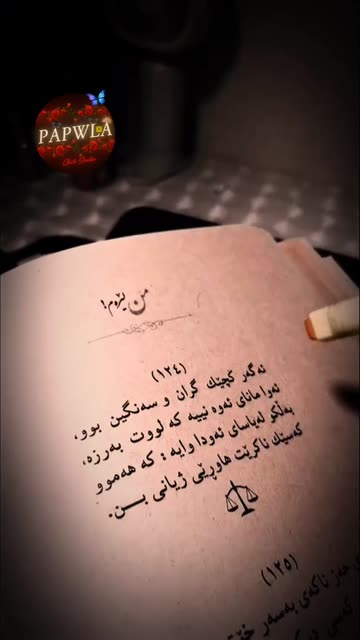 PAPWLA
من بێزوم!
(١٢٤)
ئەگەر کچێك گران و سەنگین بوو،
ئەوا مانای ئەوە نییە کە لووت بەرزە،
بەڵکو لەیاسای ئەودا وایە: کە هەموو
کەسێك ناکرێت هاوڕێی ژیانی بــن.
(١٢٥)
حەز ناکەی بەسەر